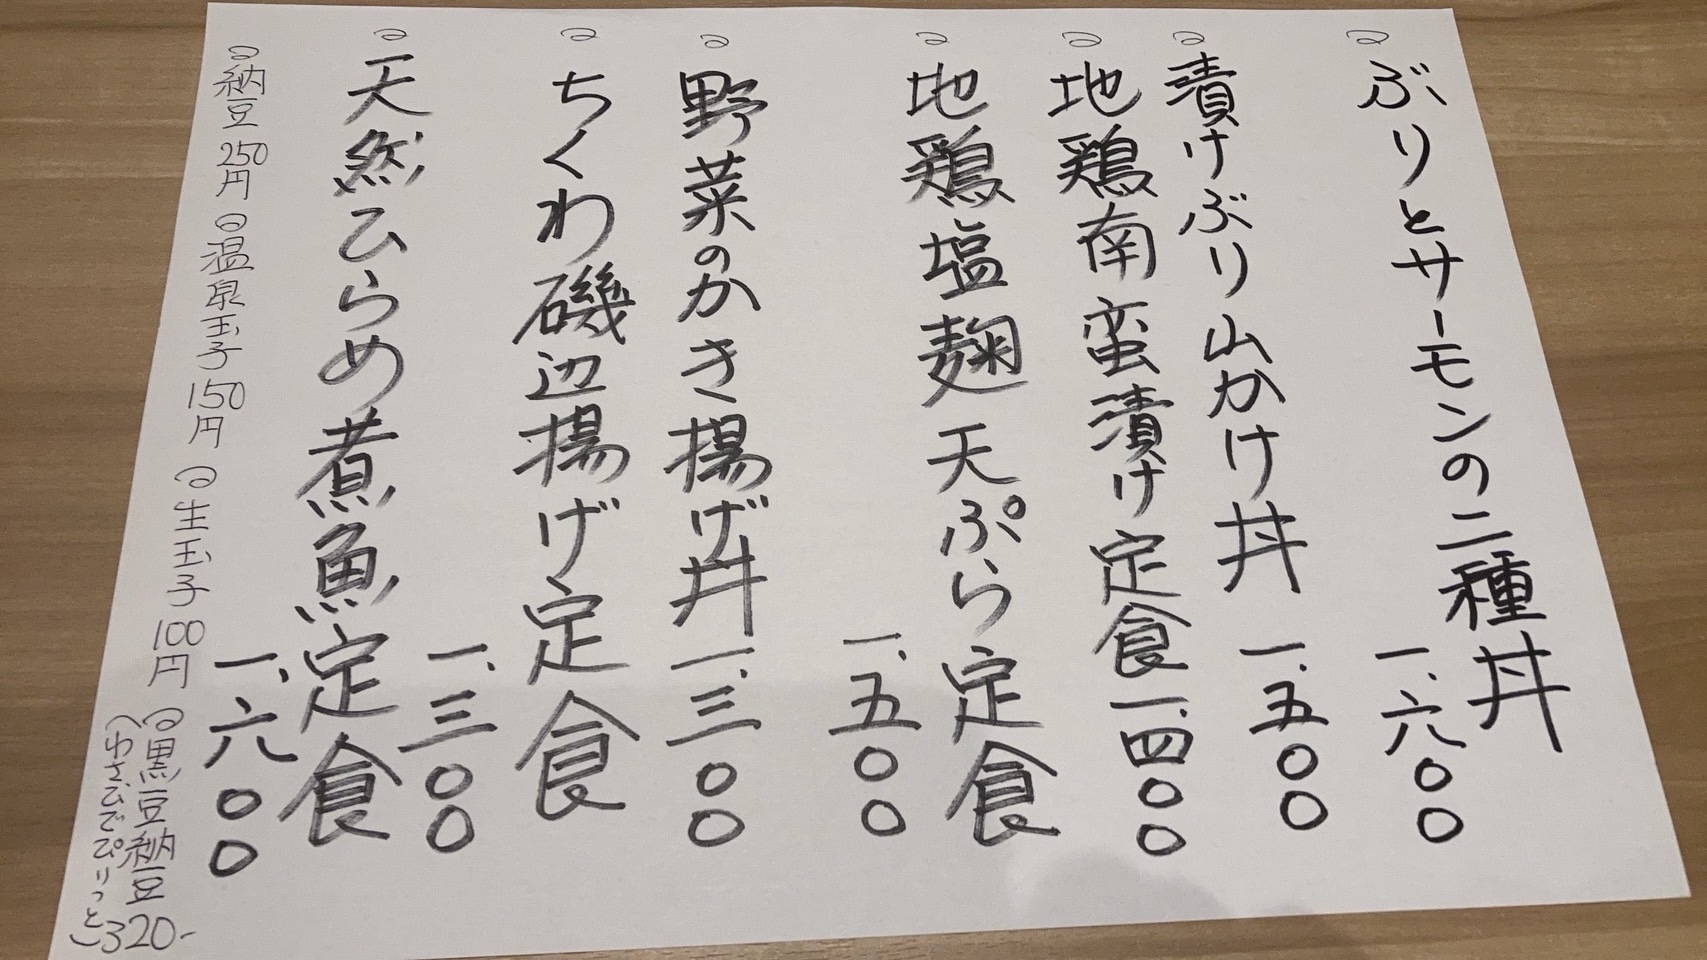 ぶりとサーモンの二種丼
一、六〇〇
漬けぶり山かけ丼 一、五〇〇
地鶏南蛮漬け定食 一、四〇〇
地鶏塩麹天ぷら定食
一、五〇〇
野菜のかき揚げ丼 一、三〇〇
ちくわ磯辺揚げ定食
一、三〇〇
天然ひらめ煮魚定食
一、六〇〇
納豆 250円 温泉玉子 150円 生玉子 100円 黒豆納豆 320-
(わさびでぴりっと)